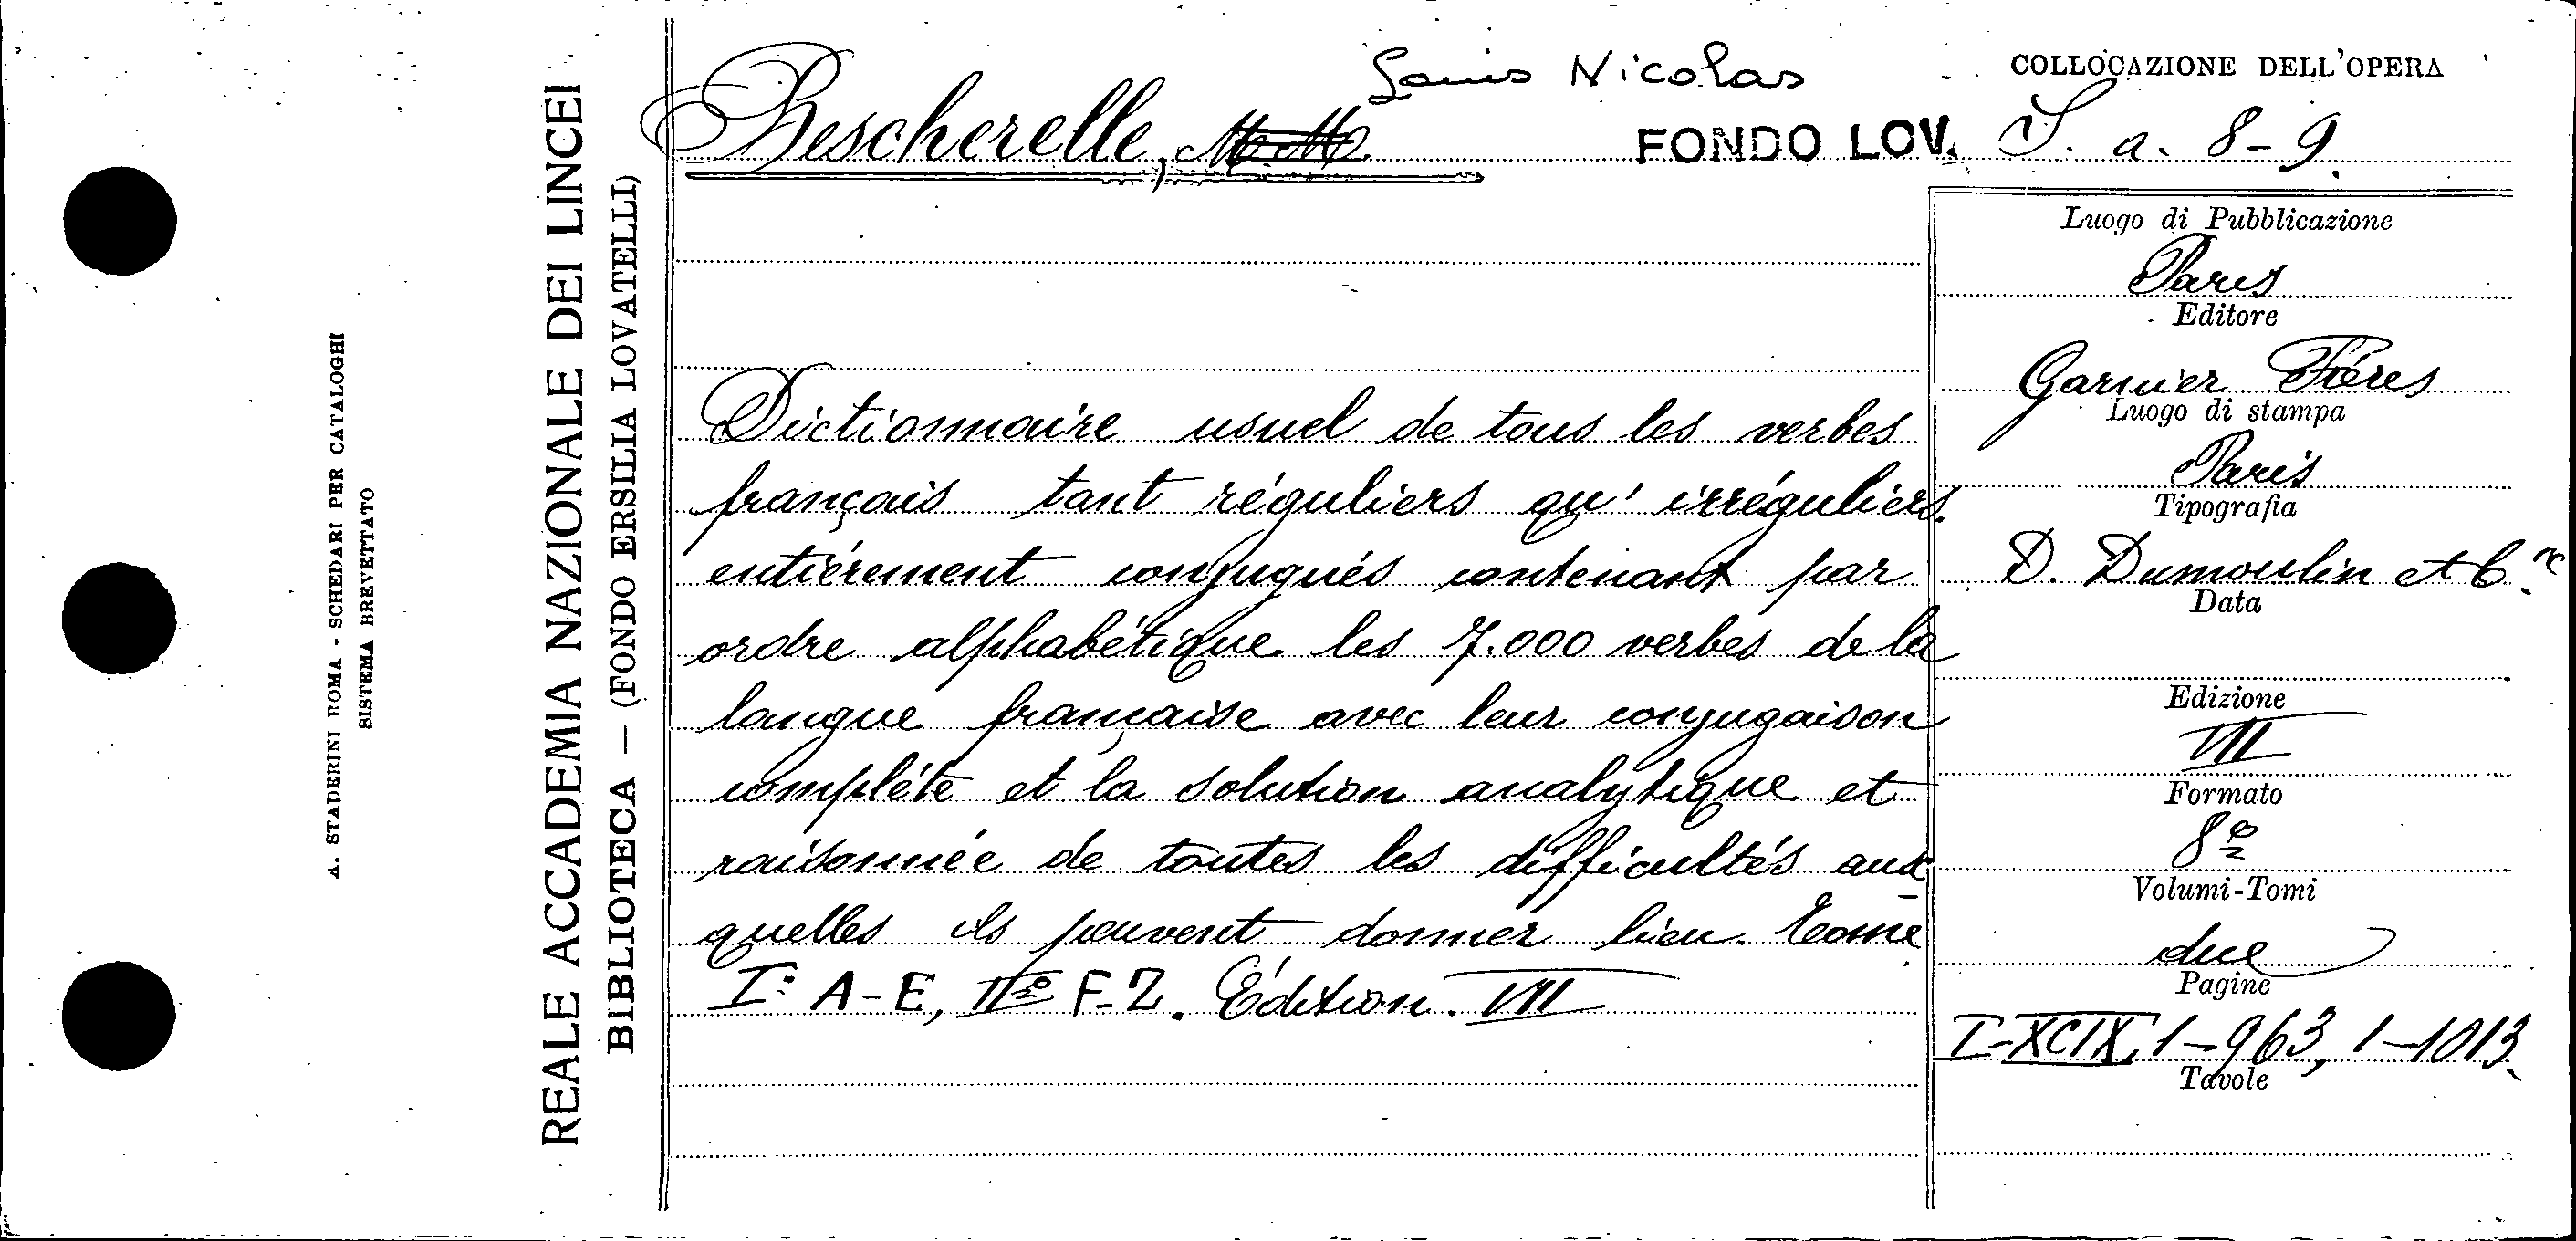 A. STADERINI ROMA - SCHEDARI PER CATALOGHI
SISTEMA BREVETTATO
REALE ACCADEMIA NAZIONALE DEI LINCEI
BIBLIOTECA — (FONDO ERSILIA LOVATELLI)
Louis Nicolas
Bescherelle,
COLLOCAZIONE DELL'OPERA
FONDO LOV. S. a. 8-9.
Dictionnaire usuel de tous les verbes
français tant réguliers qu'irréguliers
entiérement conjugués contenant par
ordre alphabétique les 7.000 verbes de la
langue française avec leur conjugaison
compléte et la solution analytique et
raisonnée de toutes les difficultés aux
quelles ils peuvent donner lieu. Tome
I: A-E, IIº F-Z. Édition. VII
Luogo di Pubblicazione
Paris
Editore
Garnier Fréres
Luogo di stampa
Paris
Tipografia
D. Dumoulin et C.ie
Data
Edizione
VII
Formato
8º
Volumi-Tomi
due
Pagine
I-XCIX, 1-963, 1-1013.
Tavole